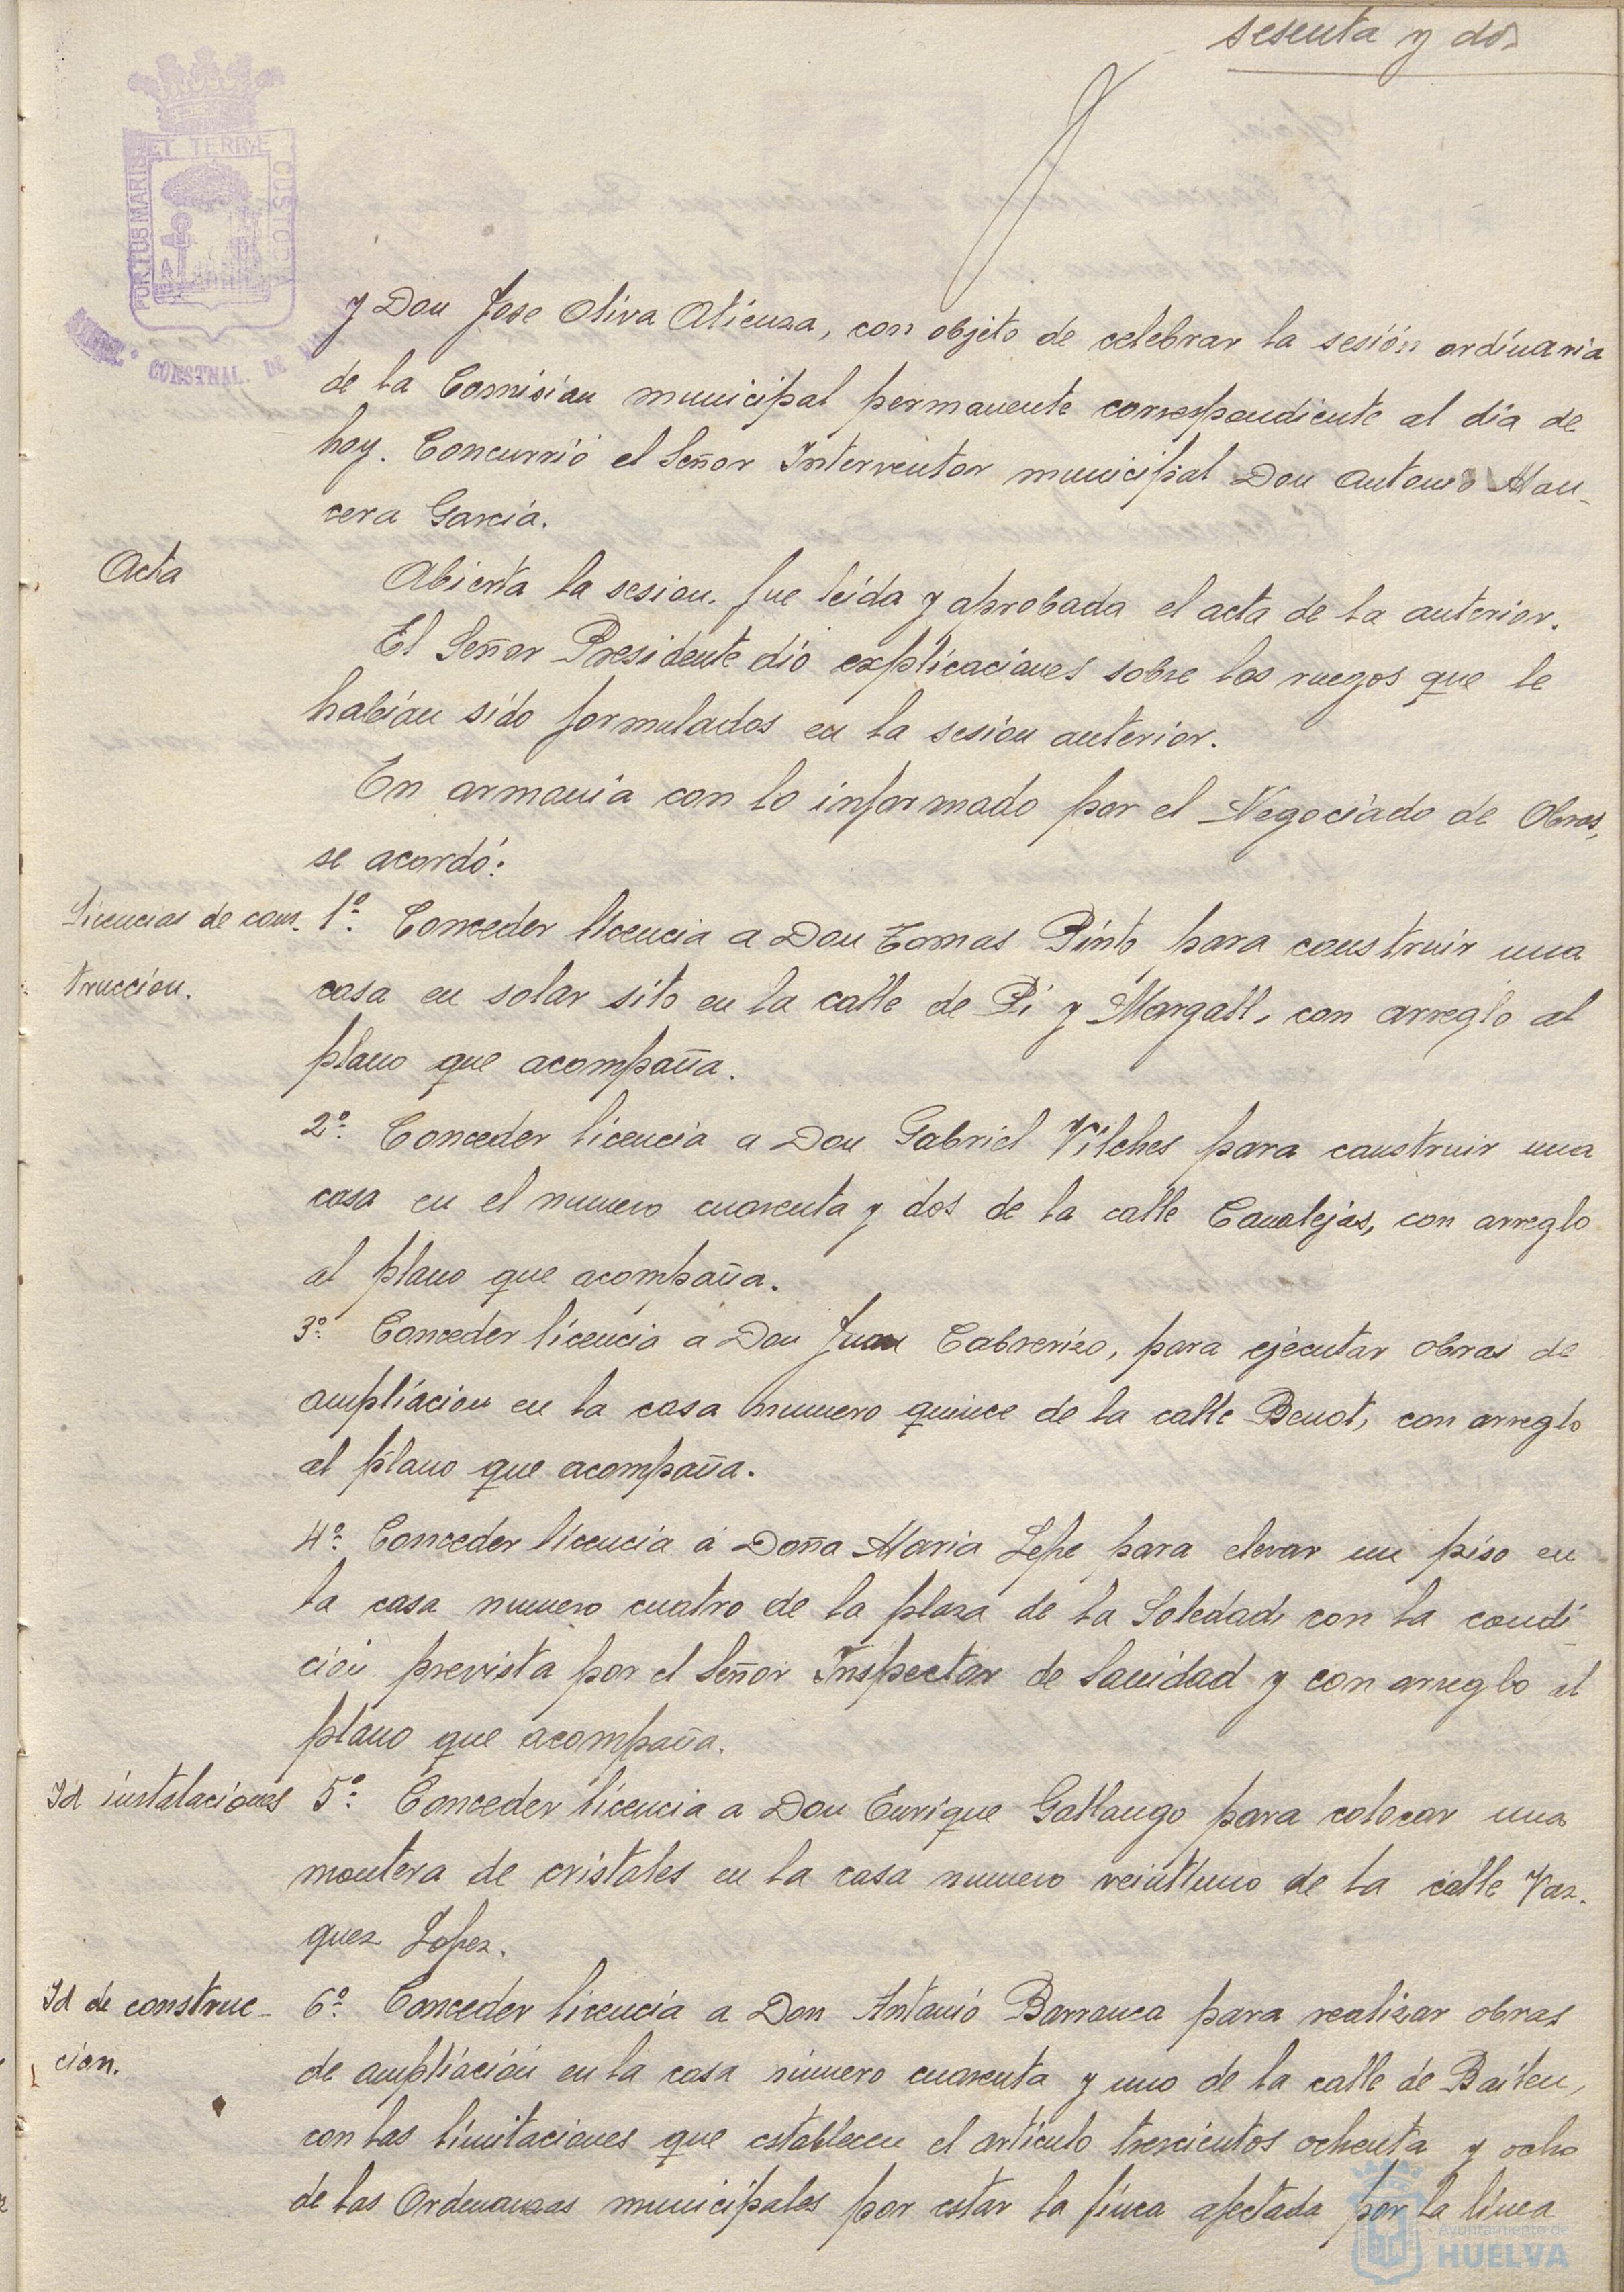 sesenta y dos
PORTUS MARIS ET TERRÆ CUSTODIA
CONSTNAL. DE
y Don Jose Oliva Atienza, con objeto de celebrar la sesión ordinaria
de la Comision municipal permanente correspondiente al dia de
hoy. Concurrió el Señor Interventor municipal Don Antonio Man-
cera Garcia.
Acta
Abierta la sesion. fue leida y aprobada el acta de la anterior.
El Señor Presidente dió explicaciones sobre los ruegos que le
habian sido formulados en la sesion anterior.
En armonia con lo informado por el Negociado de Obras,
se acordó:
Licencias de cons-
truccion.
1º Conceder licencia a Don Tomas Pinto para construir una
casa en solar sito en la calle de Pi y Margall, con arreglo al
plano que acompaña.
2º Conceder licencia a Don Gabriel Vilches para construir una
casa en el numero cuarenta y dos de la calle Canalejas, con arreglo
al plano que acompaña.
3º Conceder licencia a Don Juan Cabrerizo, para ejecutar obras de
ampliacion en la casa numero quince de la calle Benot, con arreglo
al plano que acompaña.
4º Conceder licencia á Doña Maria Lepe para elevar un piso en
la casa numero cuatro de la plaza de la Soledad, con la condi
ción prevista por el Señor Inspector de Sanidad y con arreglo al
plano que acompaña.
Id instalaciones
5º Conceder licencia a Don Enrique Gallango para colocar una
montera de cristales en la casa numero veintiuno de la calle Vaz-
quez Lopez.
Id de construc-
cion.
6º Conceder licencia a Don Antonió Barranca para realizar obras
de ampliación en la casa número cuarenta y uno de la calle de Bailen,
con las limitaciones que establecen el articulo trescientos ochenta y ocho
de las Ordenanzas municipales por estar la finca afectada por la linea
Ayuntamiento de
HUELVA